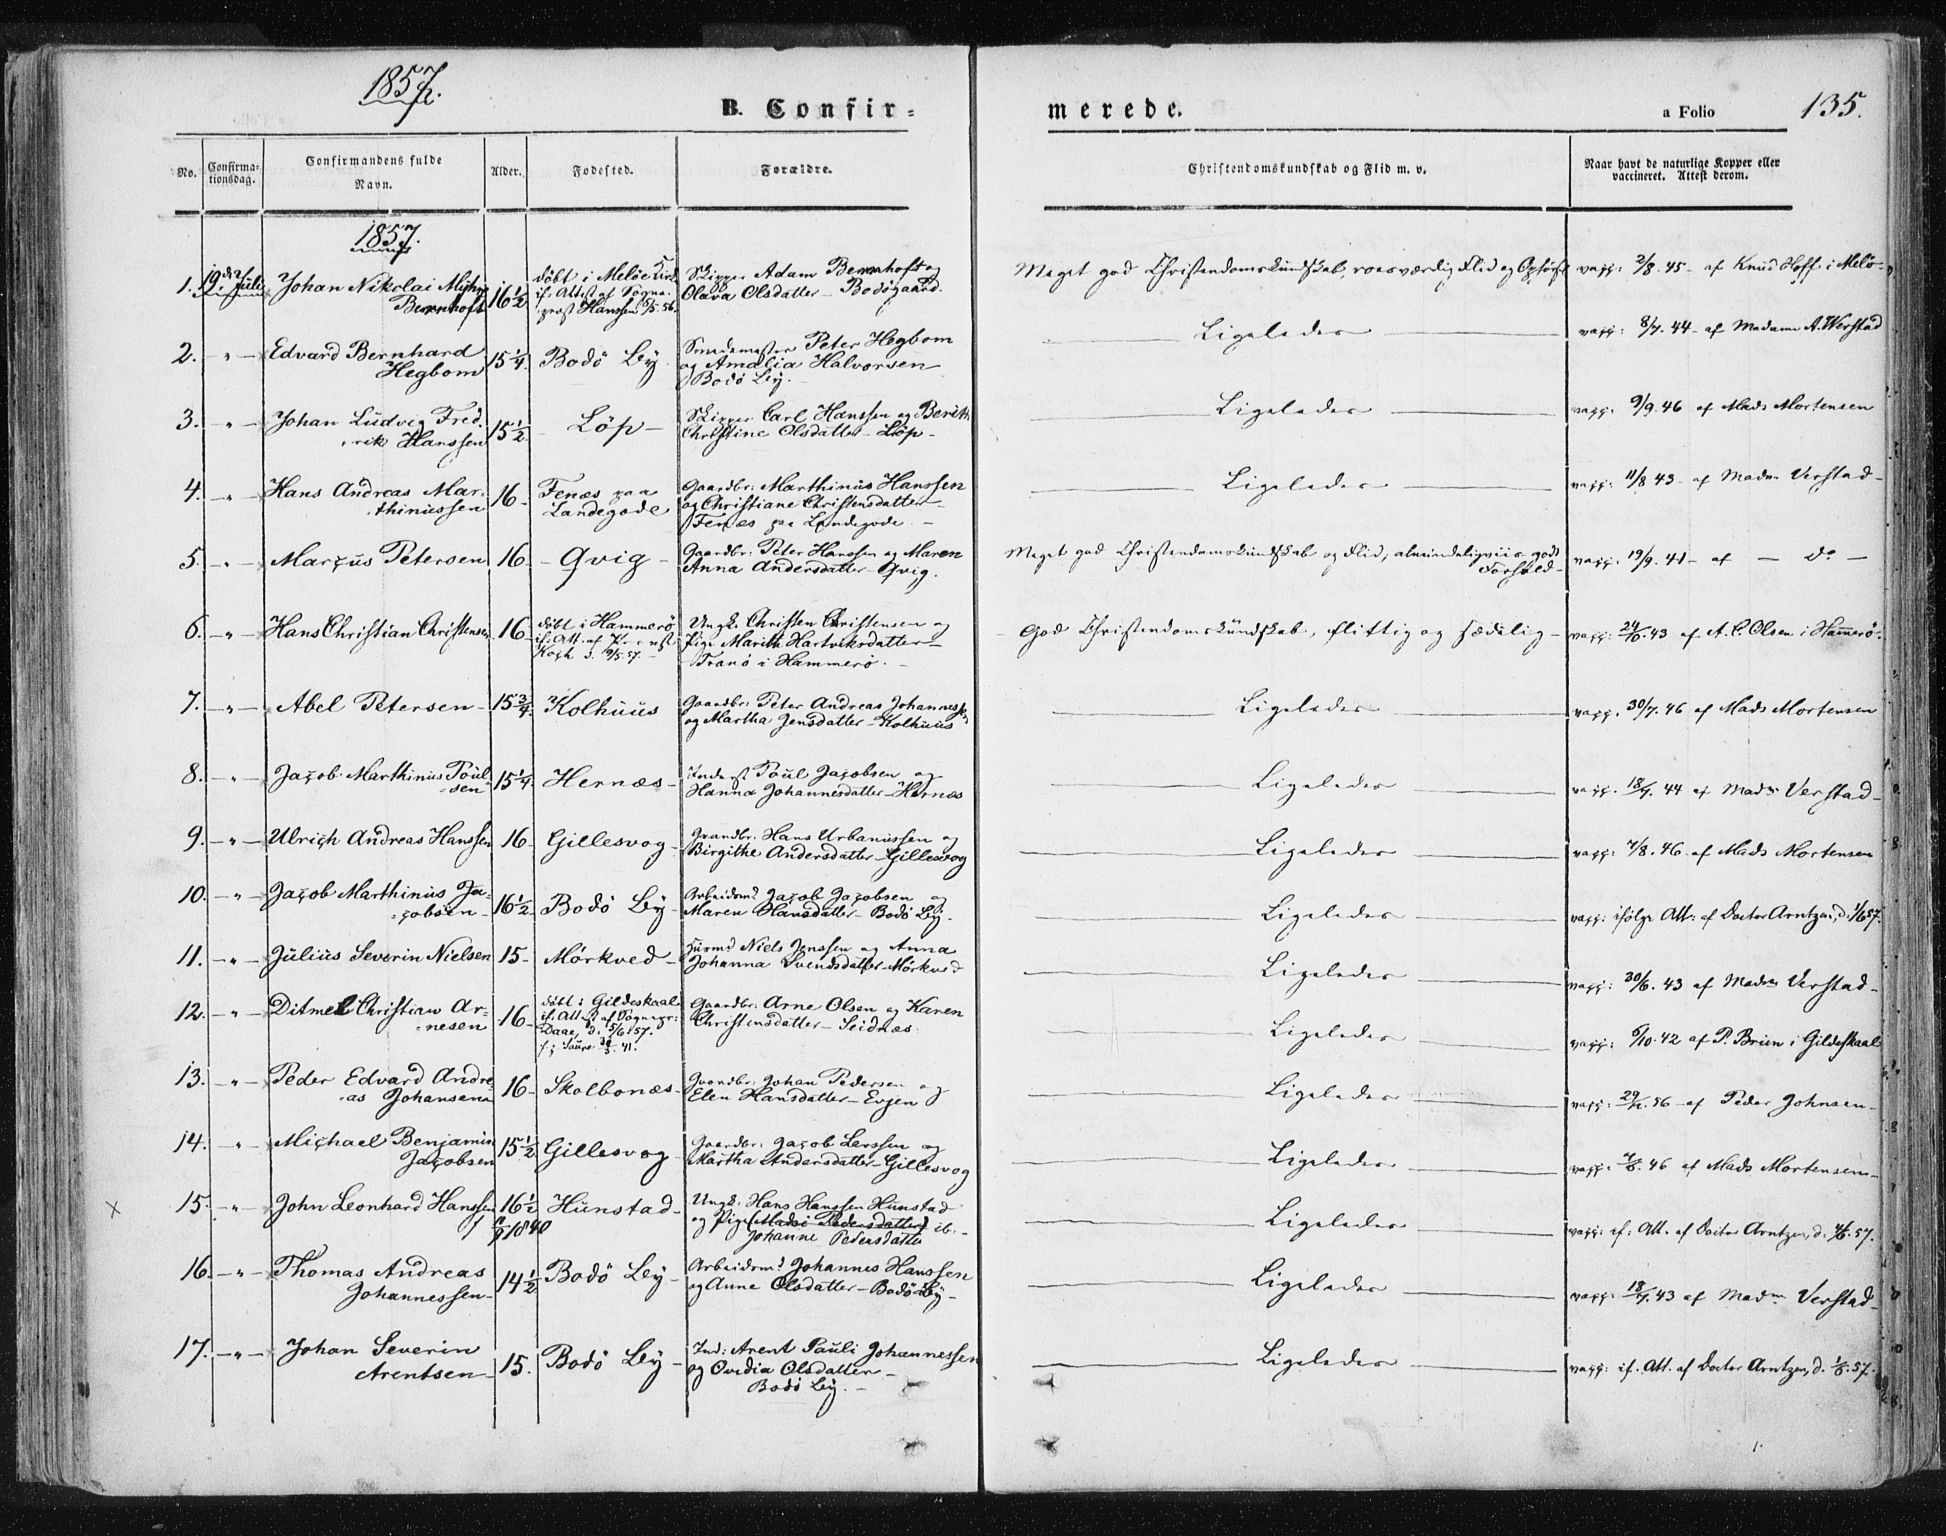 1857.
B. Confir-
merede.
a Folio
135.
No.
Confirma-
tionsdag.
Confirmandens fulde
Navn.
Alder.
Fødested.
Forældre.
Christendomskundskab og Flid m. v.
Naar havt de naturlige Kopper eller
vaccineret. Attest derom.
1857.
1. 19de Juli Johan Nikolai
Bernhoft 16½ døbt i Meløe
if. Attest af Sogne-
præst Hanssen
Skipper Adam Bernhoft og
Olava Olsdatter – Bodøgaard.
Meget god Christendomskundskab, roesværdig Flid og Opførsel
vacc: 2/8. 45 – af Knud Hoff. i Melø
2. –„– Edvard Bernhard
Hegbom 15¼ Bodø By
Smedemester Peter Hegbom
og Amalia Halvorsen
Bodø By.
Ligeledes
vacc: 8/7. 44 – af Madame A. Werstad
3. –„– Johan Ludvig Fred-
rik Hanssen 15½ – Løp –
Skipper Carl Hanssen og Berith
Christine Olsdatter – Løp –
Ligeledes
vacc: 9/9. 46 af Mads Mortensen
4. –„– Hans Andreas Mar-
thinussen 16 – Fenæs paa
Landegode
Gaardbr: Marthinus Hanssen
og Christiane Christensdatter –
Fenæs paa Landegode –
Ligeledes
vacc: 11/8 43 – af Madm Verstad –
5. –„– Marcus Petersen 16 – Qvig –
Gaardbr: Peter Hanssen og Maren
Anna Andersdatter – Qvig.
Meget god Christendomskundskab og Flid, almindeligviis godt
Forhold –
vacc: 19/9. 41 – af – do –
6. –„– Hans Christian Christensen 16 – døbt i Hammerø
if. Att. af
Koch d. 19/5 57. –
Ungk. Christen Christensen og
Pige Marith Hartviksdatter –
Tranø i Hammerø. –
God Christendomskundskab, flittig og sædelig –
vacc: 43 af A. C. Olsen i Hammerø.
7. –„– Abel Petersen – 15¾ Kolhuus
Gaardbr: Peter Andreas Johannessen
og Martha Jensdatter – Kolhuus
Ligeledes
vacc. 30/7. 46 af Mads Mortensen
8. –„– Jacob Marthinus Poul-
sen 15¼ Hernæs –
Inderst Poul Jacobsen og
Hanna Johannesdatter – Hernæs
Ligeledes
vacc. 18/7. 44 af Madm Verstad –
9. –„– Ulrich Andreas Hanssen 16 – Gillesvog –
Gaardbr: Hans Urbanussen og
Birgithe Andersdatter – Gillesvog
Ligeledes
vacc: 7/8. 46 – af Mads Mortensen
10. –„– Jacob Marthinus Ja-
cobsen – 16½ Bodø By –
Arbeidsmd Jacob Jacobsen og
Maren Hansdatter – Bodø By.
Ligeledes
vacc: ifølge Att: af Doctor Arntzen, d: 1/6 57.
11. –„– Julius Severin Nielsen 15 – Mørkved –
Huusmd Niels Jenssen og Anna
Johanna Svendsdatter – Mørkved
Ligeledes
vacc: 30/6. 43 af Madm Verstad –
12. –„– Ditmel Christian Ar-
nesen 16 – døbt i Gildeskaal
if. Attest af Sognepr:
Daae, d. 5/6 57.
Gaardbr: Arne Olsen og Karen
Christensdatter – Seidnæs.
Ligeledes
vacc: 6/10. 42 af P. Brun i Gildeskaal
13. –„– Peder Edvard Andre-
as Johansen 16 – Skolbonæs –
Gaardbr: Johan Pedersen og
Elen Hansdatter – Evjen
Ligeledes
vacc: 56 – af Peder Johnsen –
14. –„– Michael Benjamin
Jacobsen 15½ Gillesvog –
Gaardbr: Jacob Larssen og
Martha Andersdatter – Gillesvog
Ligeledes
vacc: 7/8. 46 af Mads Mortensen –
x 15. –„– John Leonhard Hanssen 16½ Hunstad –
1840
Ungk: Hans Hanssen Hunstad
og Pige (Pedersdatter) ib. –
Johanne Pedersdatter
Ligeledes
vacc: if: Att. af Doctor Arntzen, d: 57.
16. –„– Thomas Andreas
Johannessen – 14½ Bodø By –
Arbeidsmd Johannes Hanssen
og Anne Olsdatter – Bodø By –
Ligeledes
vacc: 18/7. 43 af Madm Verstad –
17. –„– Johan Severin
Arentsen – 15. Bodø By –
Ind: Arent Pauli Johannessen
og Ovidia Olsdatter –
Bodø By. –
Ligeledes
vacc: if. Att. af Doctor Arntzen, d. 1/6. 57.